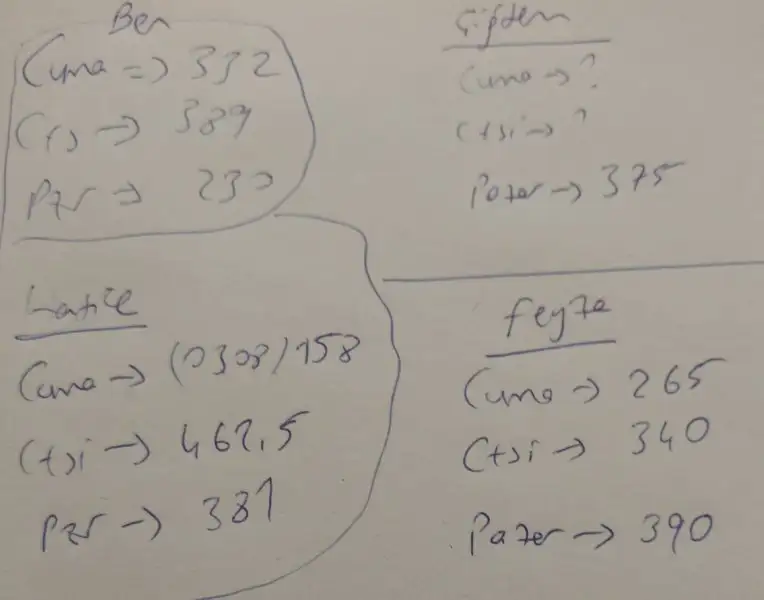 Ben
Cuma => 332
Cts -> 389
Pzr -> 230
Çiğdem
Cuma -> ?
Ctsi -> ?
Pazar -> 375
Hatice
Cuma -> (0308) 158
Ctsi -> 462,5
Pzr -> 381
Feyza
Cuma -> 265
Ctsi -> 340
Pazar -> 390